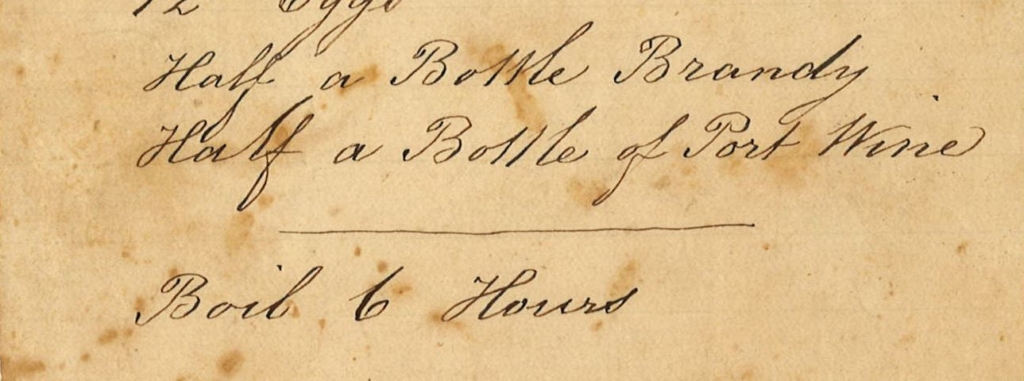 12 Eggs
Half a Bottle Brandy
Half a Bottle of Port Wine
Boil 6 Hours